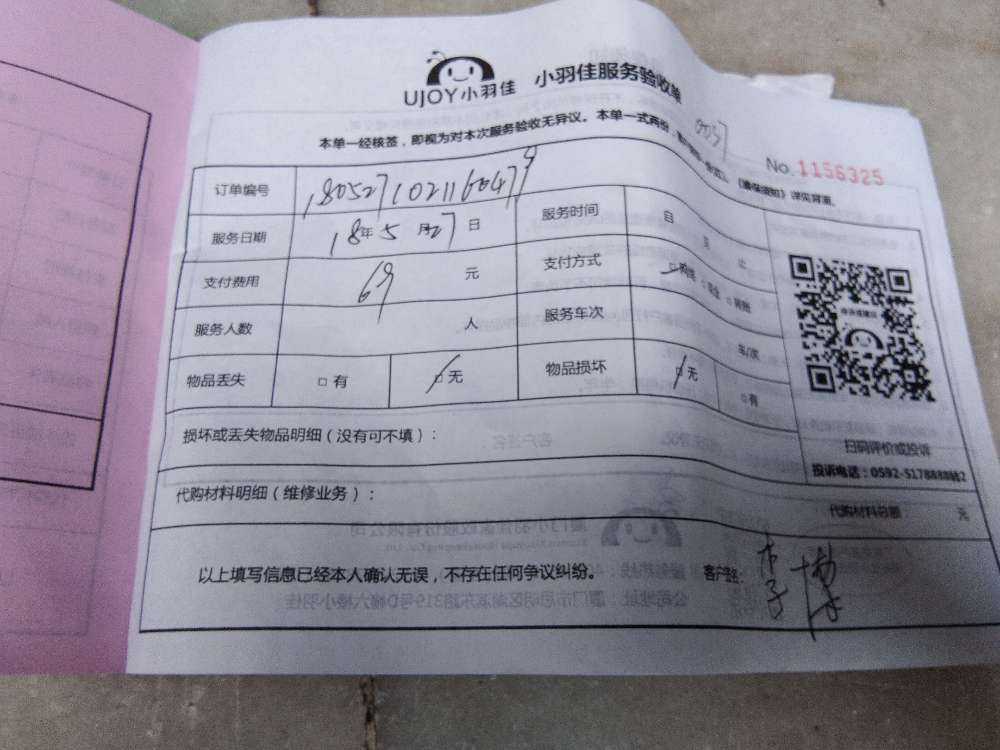 UJOY小羽佳 小羽佳服务验收单
本单一经核签，即视为对本次服务验收无异议。本单一式两份，
《 》详见背面。
0037
No.1156325
订单编号 180527102116047
服务日期 18年5月27日 服务时间 自 至 止
支付费用 69 元 支付方式 □ □现金 □
服务人数 人 服务车次 车/次
物品丢失 □有 □无 物品损坏 □无 □有
损坏或丢失物品明细（没有可不填）：
扫码评价或投诉
投诉电话：0592-5178888转2
代购材料明细（维修业务）：
代购材料总额 元
以上填写信息已经本人确认无误，不存在任何争议纠纷。 客户签名： 李博